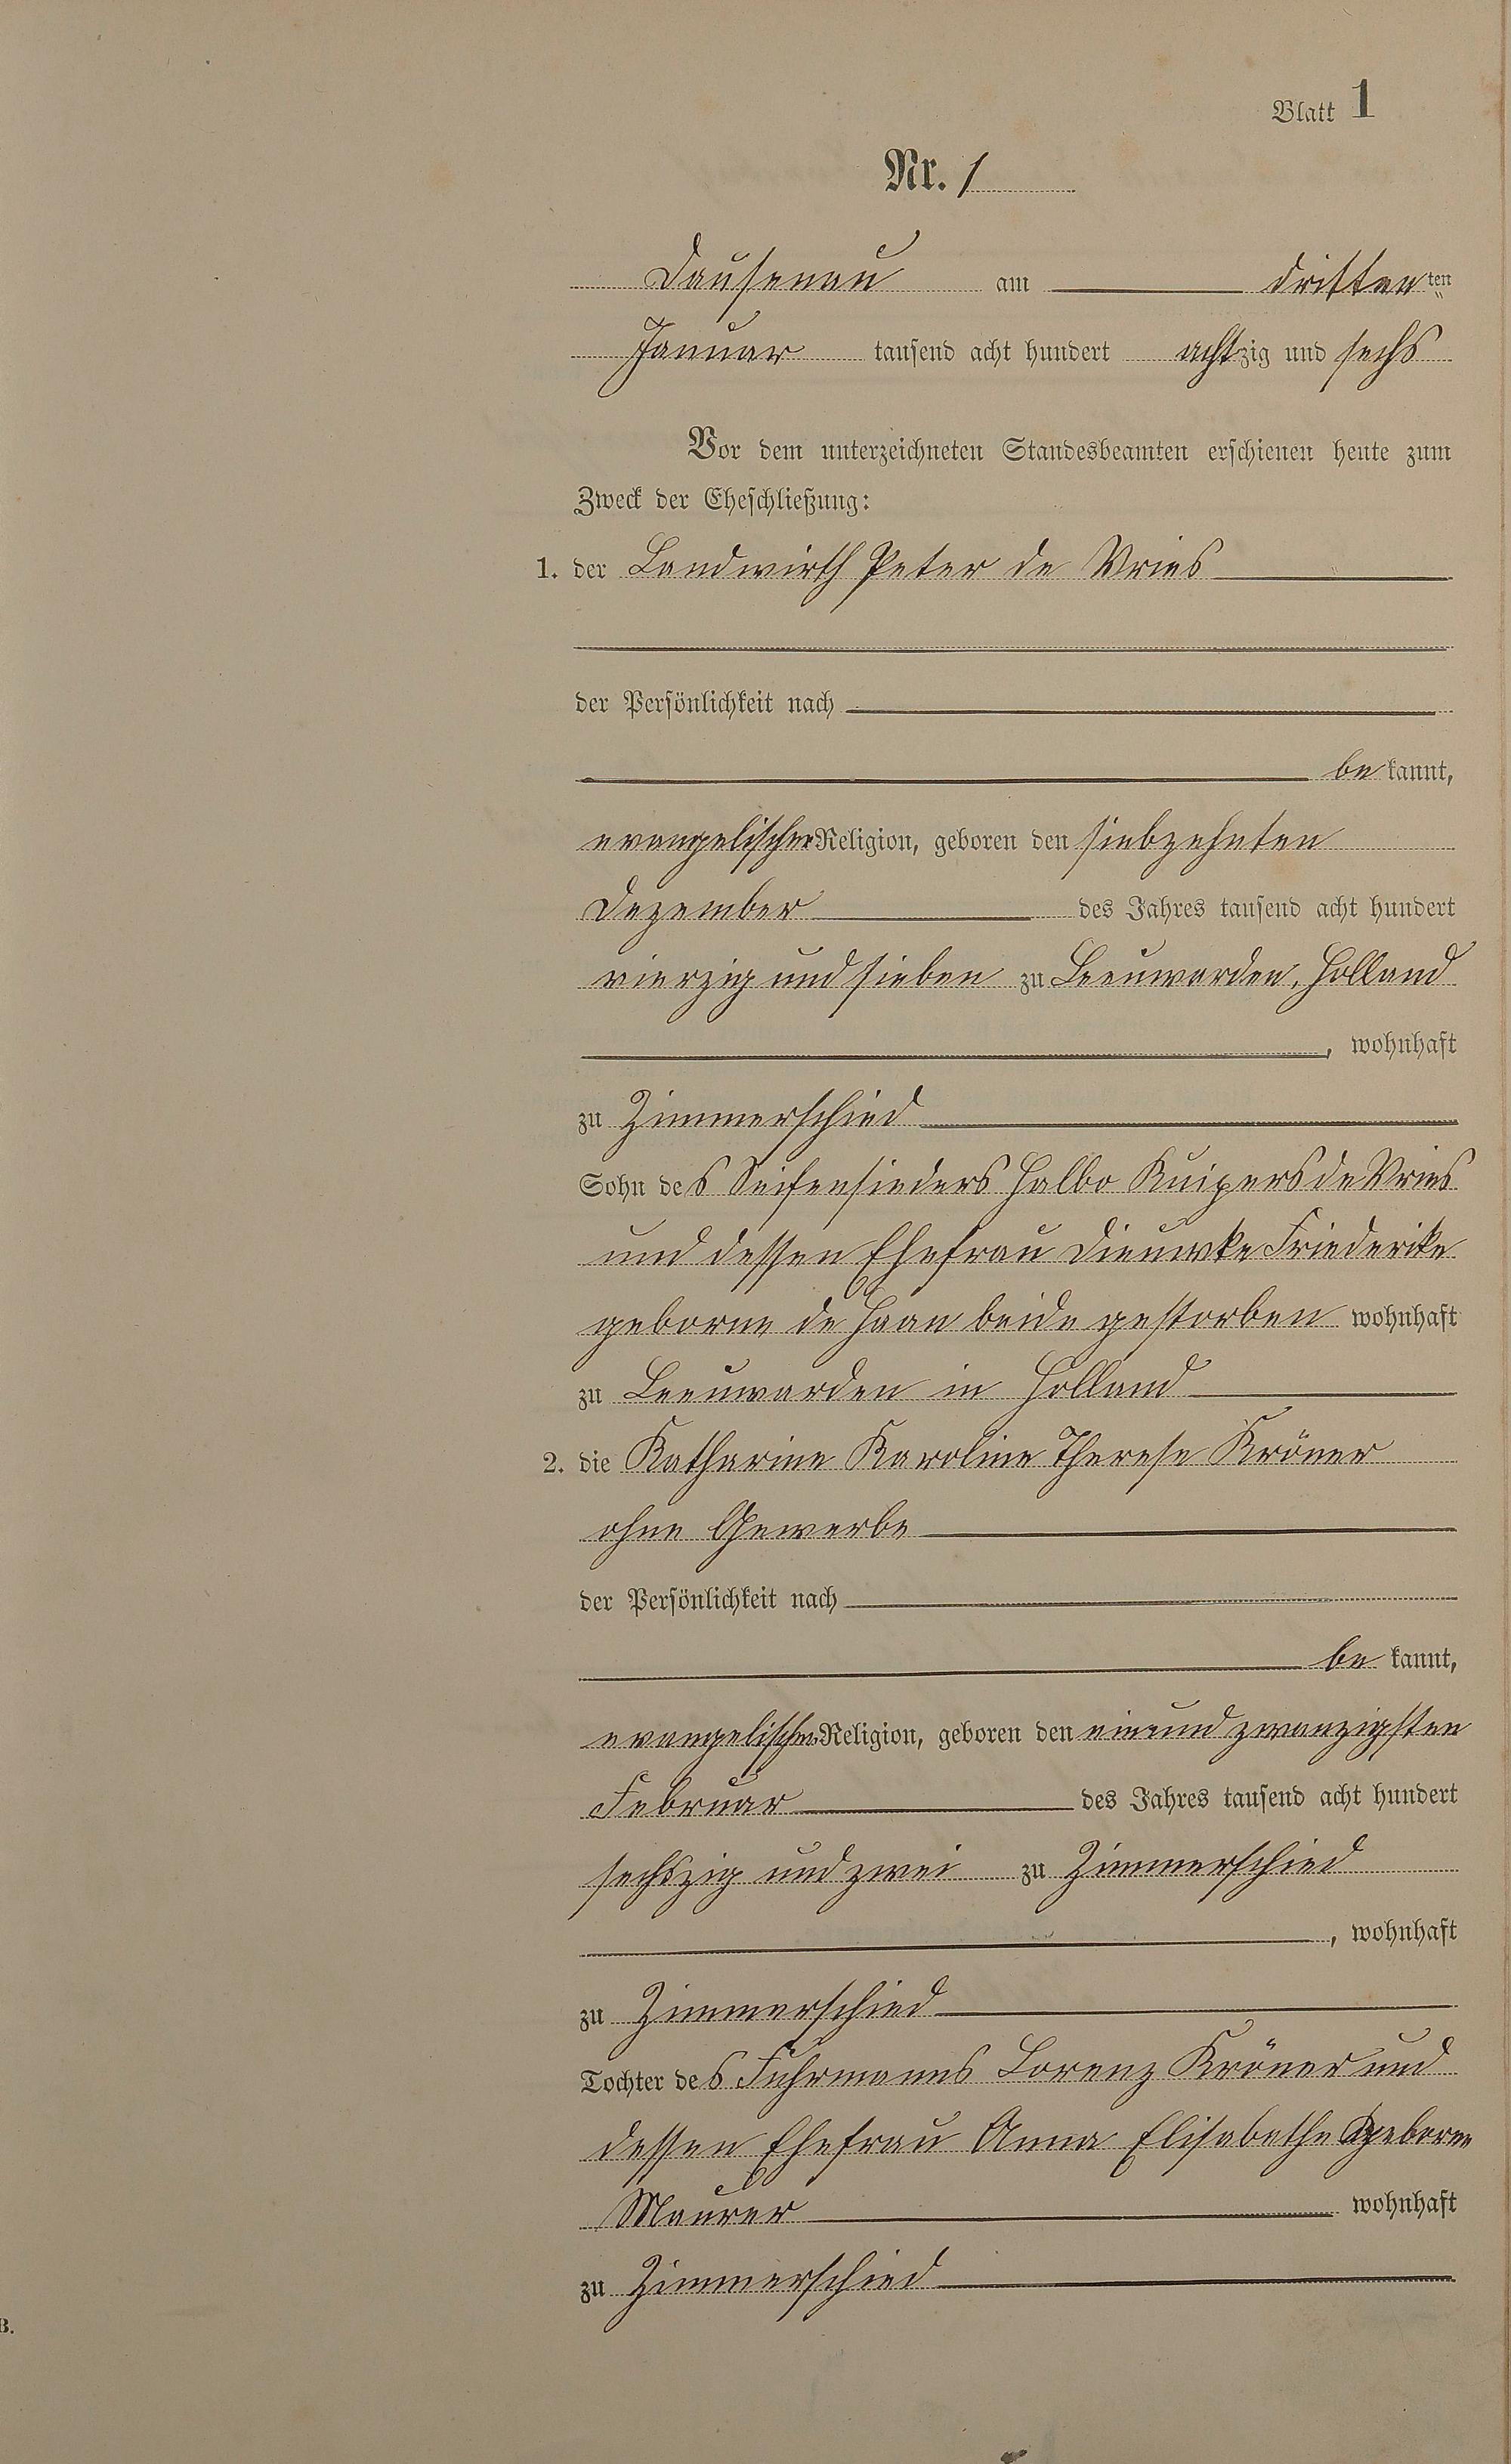 Blatt 1
Nr. 1
Dausenau am dritten ten
Januar tausend acht hundert achtzig und sechs
Vor dem unterzeichneten Standesbeamten erschienen heute zum
Zweck der Eheschließung:
1. der Landwirth Peter de Vries
der Persönlichkeit nach
be kannt,
evangelischer Religion, geboren den siebzehnten
Dezember des Jahres tausend acht hundert
vierzig und sieben zu Leeuwarden, Holland
, wohnhaft
zu Zimmerschied
Sohn des Seifensieders Halbo Kuipers de Vries
und dessen Ehefrau Dieuwke Friederike
geborne de Haan beide gestorben wohnhaft
zu Leeuwarden in Holland
2. die Katharine Karoline Therese Kröner
ohne Gewerbe
der Persönlichkeit nach
be kannt,
evangelischer Religion, geboren den einund zwanzigsten
Februar des Jahres tausend acht hundert
sechszig und zwei zu Zimmerschied
, wohnhaft
zu Zimmerschied
Tochter des Fuhrmanns Lorenz Kröner und
dessen Ehefrau Anna Elisabethe geborne
Maurer wohnhaft
zu Zimmerschied
B.